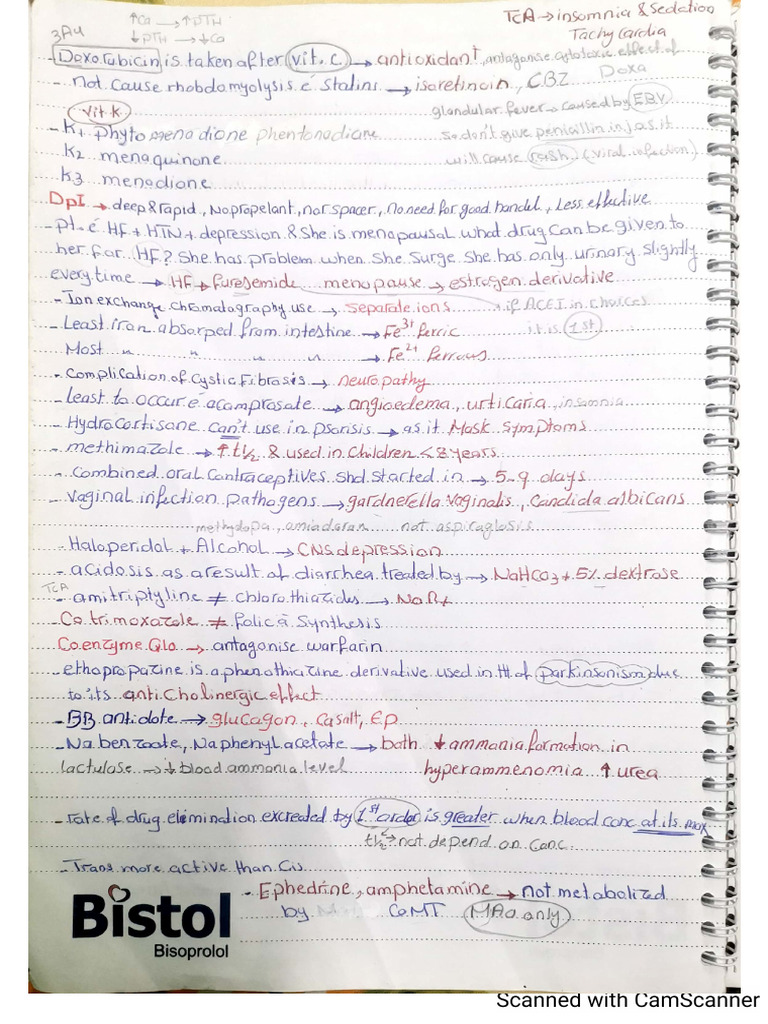 TCA → insomnia & Sedation
Tachycardia
3Au
↑Ca → ↑PTH
↓PTH → ↓Ca
- Doxorubicin is taken after vit. c → antioxidant, antagonise cytotoxic effect of Doxo
- not Cause rhabdomyolysis ē Statins → isoretinoin, CBZ
vit k
glandular fever → caused by EBV
so don't give penicillin inj as it
will cause rash (viral infection)
- K1 phytomenadione phentonadione
K2 menaquinone
K3 menadione
DpI → deep & rapid, No propelant, nor spacer, No need for good handel, Less effective
- pt. ē HF + HTN + depression & She is menapausal what drug Can be given to
her for HF? She has problem when She Surge She has only urinary slightly
everytime → HF → furesemide menopause → estrogen derivative
- Ion exchange chromatography use → Separate ions
if ACEI in choices
it is 1st
- Least iron absorped from intestine → Fe3+ ferric
Most " " " " → Fe2+ ferrous
- Complication of Cystic Fibrosis → neuropathy
- least to occur ē acamprosate → angioedema, urticaria, insomnia
- Hydrocortisane can't use in psorisis → as it Mask symptoms
- methimazole → ↑ t1/2 & used in Children < 8 years
- Combined oral Contraceptives shd started in → 5-9 days
- Vaginal infection pathogens → gardnerella vaginalis, Candida albicans
methyldopa, amiodaran not aspiraglosis
- Haloperidol + Alcohol → CNS depression
- acidosis as a result of diarrhea treated by → NaHCO3 + 5% dextrose
TCA
- amitriptyline ≠ chlorothiazides → No Rx
- Co trimoxazole ≠ folic a Synthesis
- Coenzyme Q10 → antagonise warfarin
- ethopropazine is a phenothiazine derivative used in ttt of parkinsonism due
to its anti Cholinergic effect
- BB antidote → glucagon, Ca salt, EP
- Na benzoate, Na phenyl acetate → both ↓ ammonia formation in
lactulose → ↓ blood ammonia level
hyperammenomia ↑ urea
- rate of drug elimination excreated by 1st order is greater when blood conc at its max
t1/2 → not depend on Conc.
- Trans more active than Cis
- Ephedrine, amphetamine → not metabolized
by CoMT MAO only
Bistol
Bisoprolol
Scanned with CamScanner